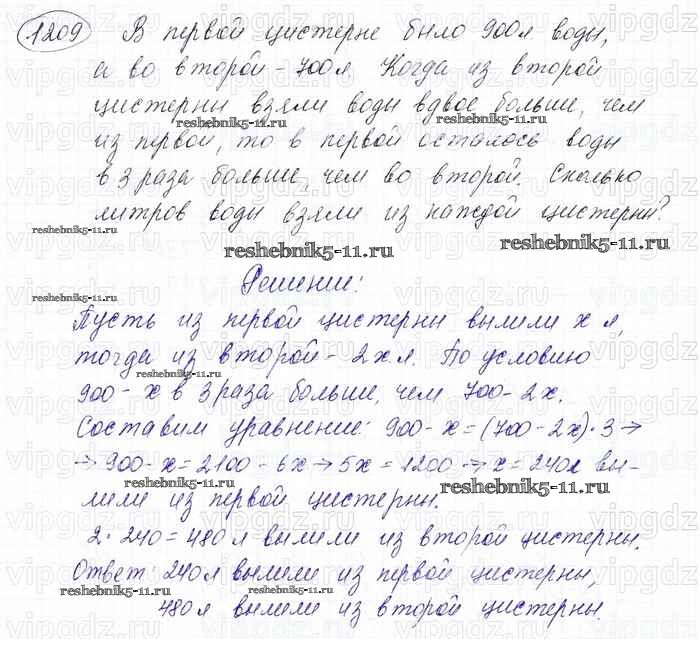 1209 В первой цистерне было 900 л воды,
а во второй - 700 л. Когда из второй
цистерны взяли воды вдвое больше, чем
из первой, то в первой осталось воды
в 3 раза больше, чем во второй. Сколько
литров воды взяли из каждой цистерны?
reshebnik5-11.ru
reshebnik5-11.ru
reshebnik5-11.ru
reshebnik5-11.ru
reshebnik5-11.ru
Решение:
reshebnik5-11.ru
Пусть из первой цистерны вылили x л,
тогда из второй - 2x л. По условию
reshebnik5-11.ru
900 - x в 3 раза больше, чем 700 - 2x.
Составим уравнение: 900 - x = (700 - 2x)·3 →
→ 900 - x = 2100 - 6x → 5x = 1200 → x = 240 л вы-
reshebnik5-11.ru
лили из первой цистерны.
2·240 = 480 л вылили из второй цистерны.
Ответ: 240 л вылили из первой цистерны,
reshebnik5-11.ru
480 л вылили из второй цистерны.
vipgdz.ru